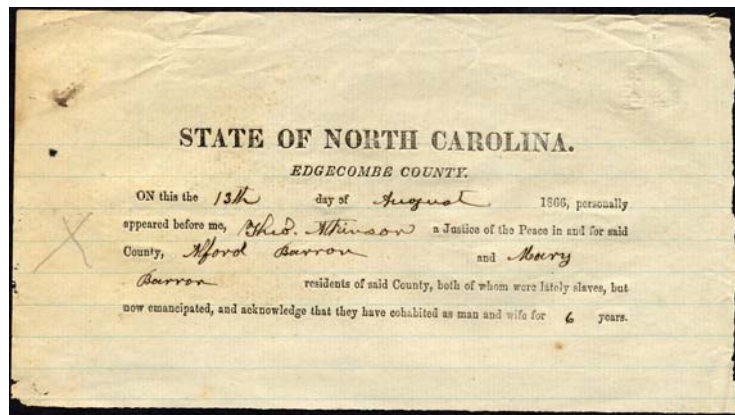 STATE OF NORTH CAROLINA.
EDGECOMBE COUNTY.
ON this the 13th day of August 1866, personally
appeared before me, Theo. Atkinson a Justice of the Peace in and for said
County, Alford Barron and Mary
Barron residents of said County, both of whom were lately slaves, but
now emancipated, and acknowledge that they have cohabited as man and wife for 6 years.